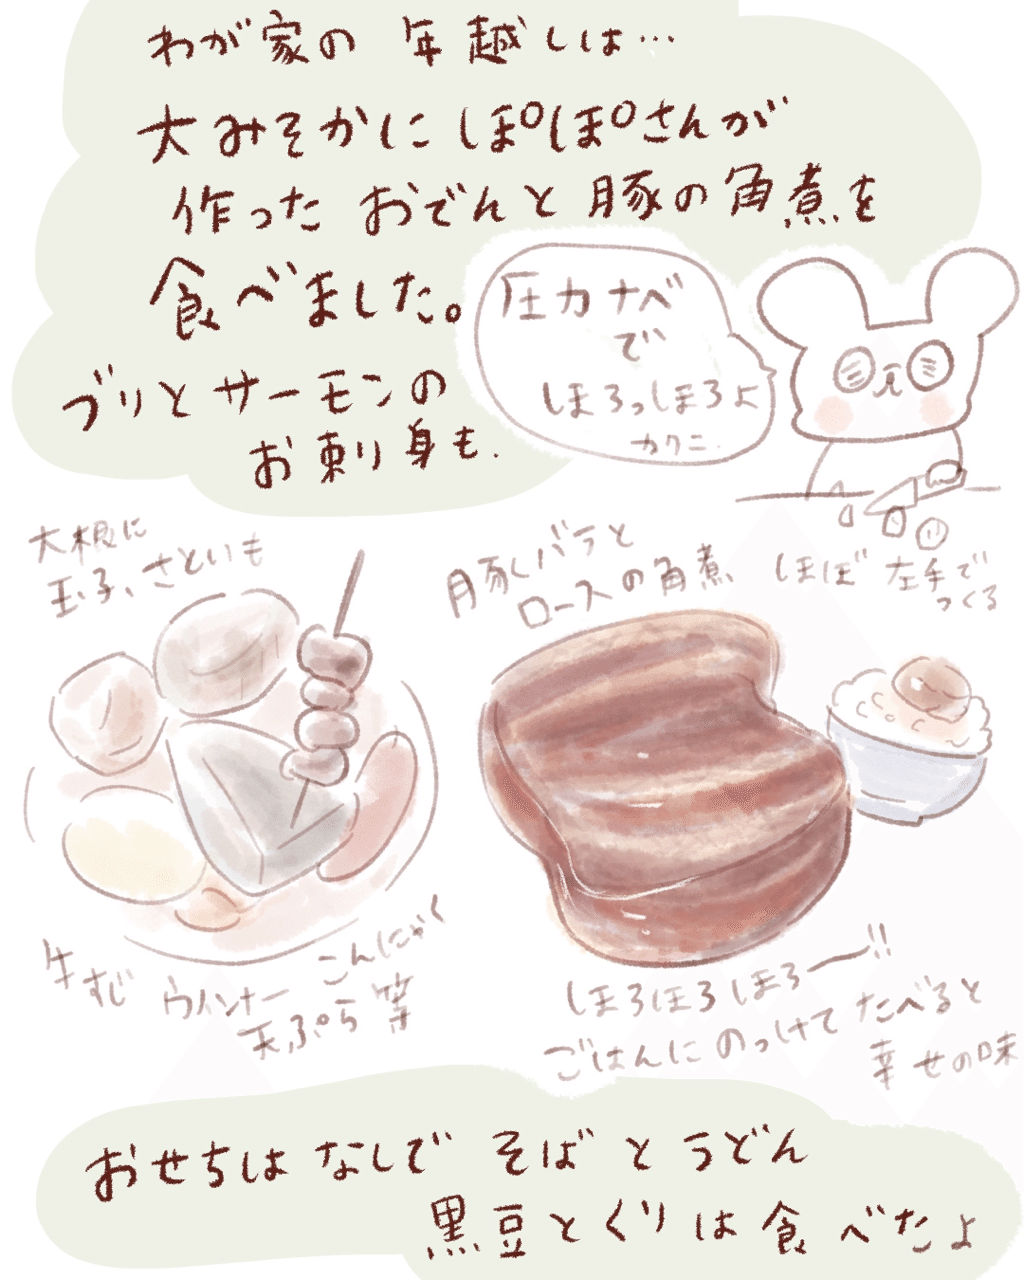 わが家の 年越しは…
大みそかに ぽぽさんが
作った おでんと 豚の角煮を
食べました。
ブリとサーモンの
お刺身も.
圧力ナベ
で
ほろっほろよ
カクニ.
大根に
玉子、さといも
豚バラと
ロースの角煮
ほぼ 左手で
つくる
牛すじ ウインナー こんにゃく
天ぷら 等
ほろほろほろー!!
ごはんに のっけて たべると
幸せの味
おせちは なしで そばと うどん
黒豆とくりは食べたよ